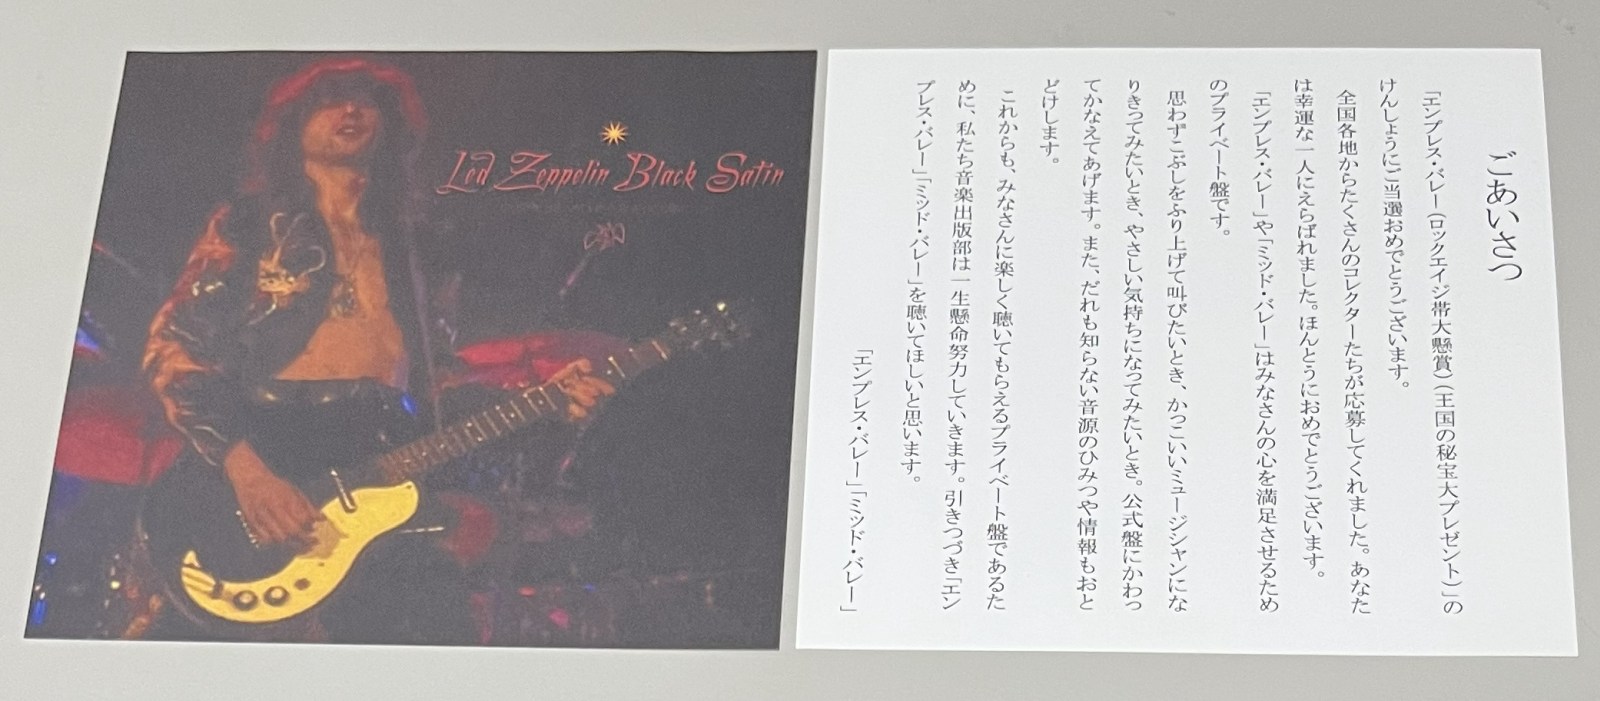 Led Zeppelin Black Satin
ごあいさつ
「エンプレス・バレー（ロックエイジ帯大懸賞）（王国の秘宝大プレゼント）」の
けんしょうにご当選おめでとうございます。
全国各地からたくさんのコレクターたちが応募してくれました。あなた
は幸運な一人にえらばれました。ほんとうにおめでとうございます。
「エンプレス・バレー」や「ミッド・バレー」はみなさんの心を満足させるため
のプライベート盤です。
思わずこぶしをふり上げて叫びたいとき、かっこいいミュージシャンにな
りきってみたいとき、やさしい気持ちになってみたいとき。公式盤にかわっ
てかなえてあげます。また、だれも知らない音源のひみつや情報もおと
どけします。
これからも、みなさんに楽しく聴いてもらえるプライベート盤であるた
めに、私たち音楽出版部は一生懸命努力していきます。引きつづき「エン
プレス・バレー」「ミッド・バレー」を聴いてほしいと思います。
「エンプレス・バレー」「ミッド・バレー」